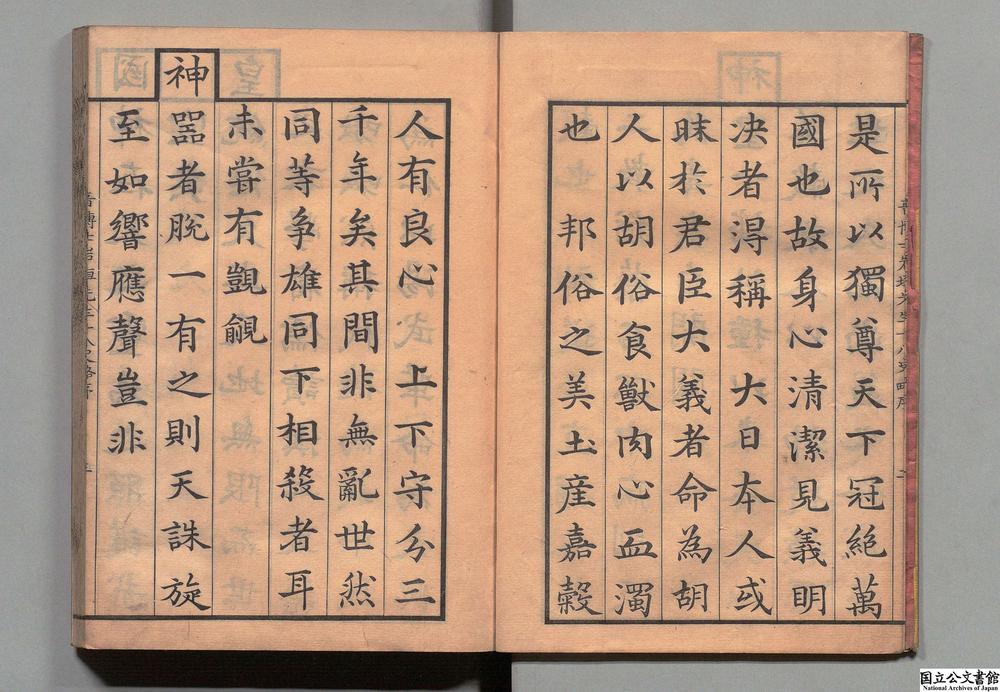 是所以獨尊天下冠絶萬
國也故身心清潔見義明
决者得稱　大日本人或
昧於君臣大義者命為胡
人以胡俗食獸肉心血濁
也　邦俗之美土産嘉穀
人有良心　上下守分三
千年矣其間非無亂世然
同等争雄同下相殺者耳
未嘗有覬覦
神
噐者脱一有之則天誅旋
至如響應聲豈非
国立公文書館
National Archives of Japan